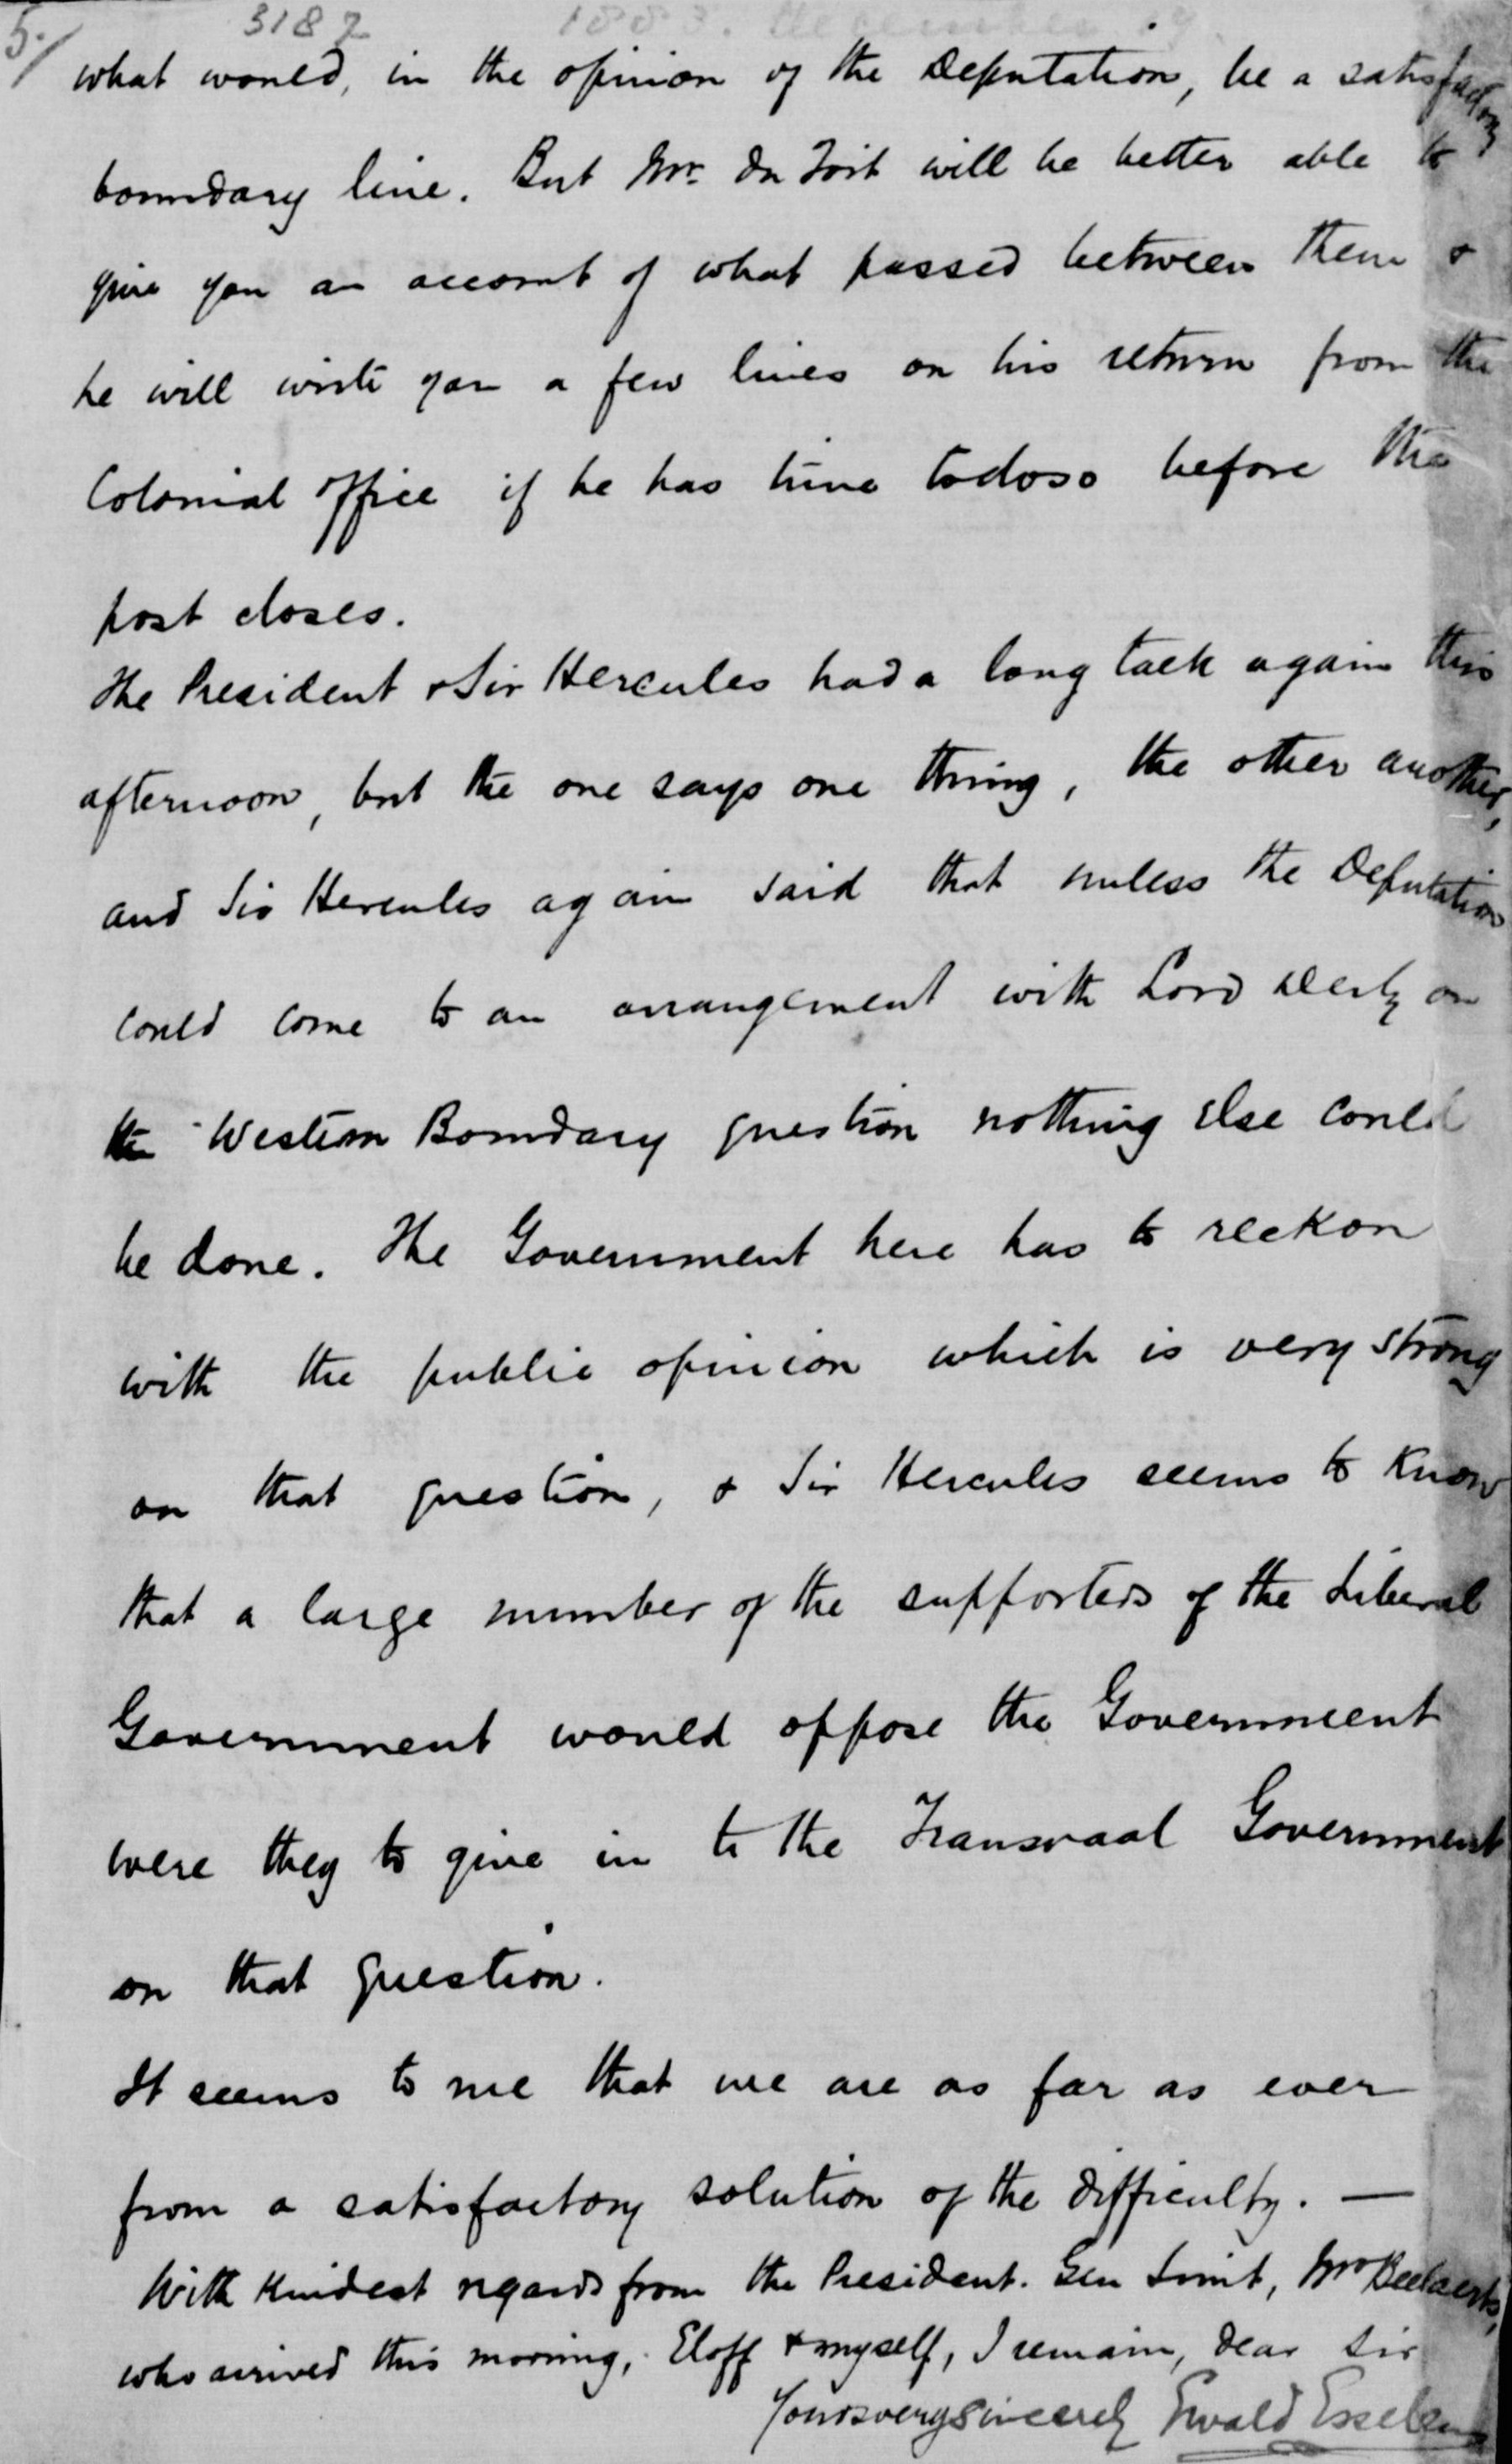 5./ 3182 1883. December
what would, in the opinion of the Deputation, be a satisfactory
boundary line. But Mr. Du Toit will be better able to
give you an account of what passed between them &
he will write you a few lines on his return from the
Colonial Office if he has time to do so before the
post closes.
The President & Sir Hercules had a long talk again this
afternoon, but the one says one thing, the other another,
and Sir Hercules again said that unless the Deputation
could come to an arrangement with Lord Derby on
the Western Boundary question nothing else could
be done. The Government here has to reckon
with the public opinion which is very strong
on that question, & Sir Hercules seems to know
that a large number of the supporters of the Liberal
Government would oppose the Government
were they to give in to the Transvaal Government
on that question.
It seems to me that we are as far as ever
from a satisfactory solution of the difficulty. —
With kindest regards from the President. Gen Smit, Mr Beelaerts,
who arrived this morning, Eloff & myself, I remain, dear Sir
Yours very sincerely Ewald Esselen